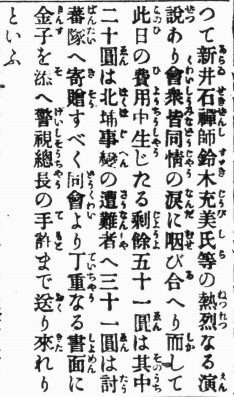 つて新井石禪師鈴木充美氏等の熱烈なる演
說あり會衆皆同情の淚に咽び合へり而して
此日の費用中生じたる剩餘五十一圓は其中
二十圓は北埔事變の遭難者へ三十一圓は討
蕃隊へ寄贈すべく同會より丁重なる書面に
金子を添へ警視總長の手許まで送り來れり
といふ